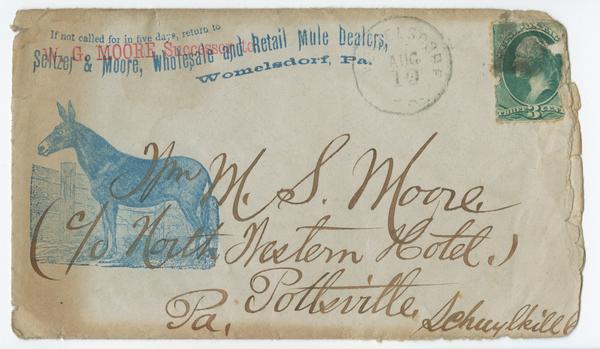 If not called for in five days, return to
W. G. MOORE Successor to
Seltzer & Moore, Wholesale and Retail Mule Dealers,
Womelsdorf, Pa.
AUG
10
THREE 3 CENTS
Wm M. S. Moore.
(c/o North Western Hotel.)
Pottsville.
Pa. Schuylkill